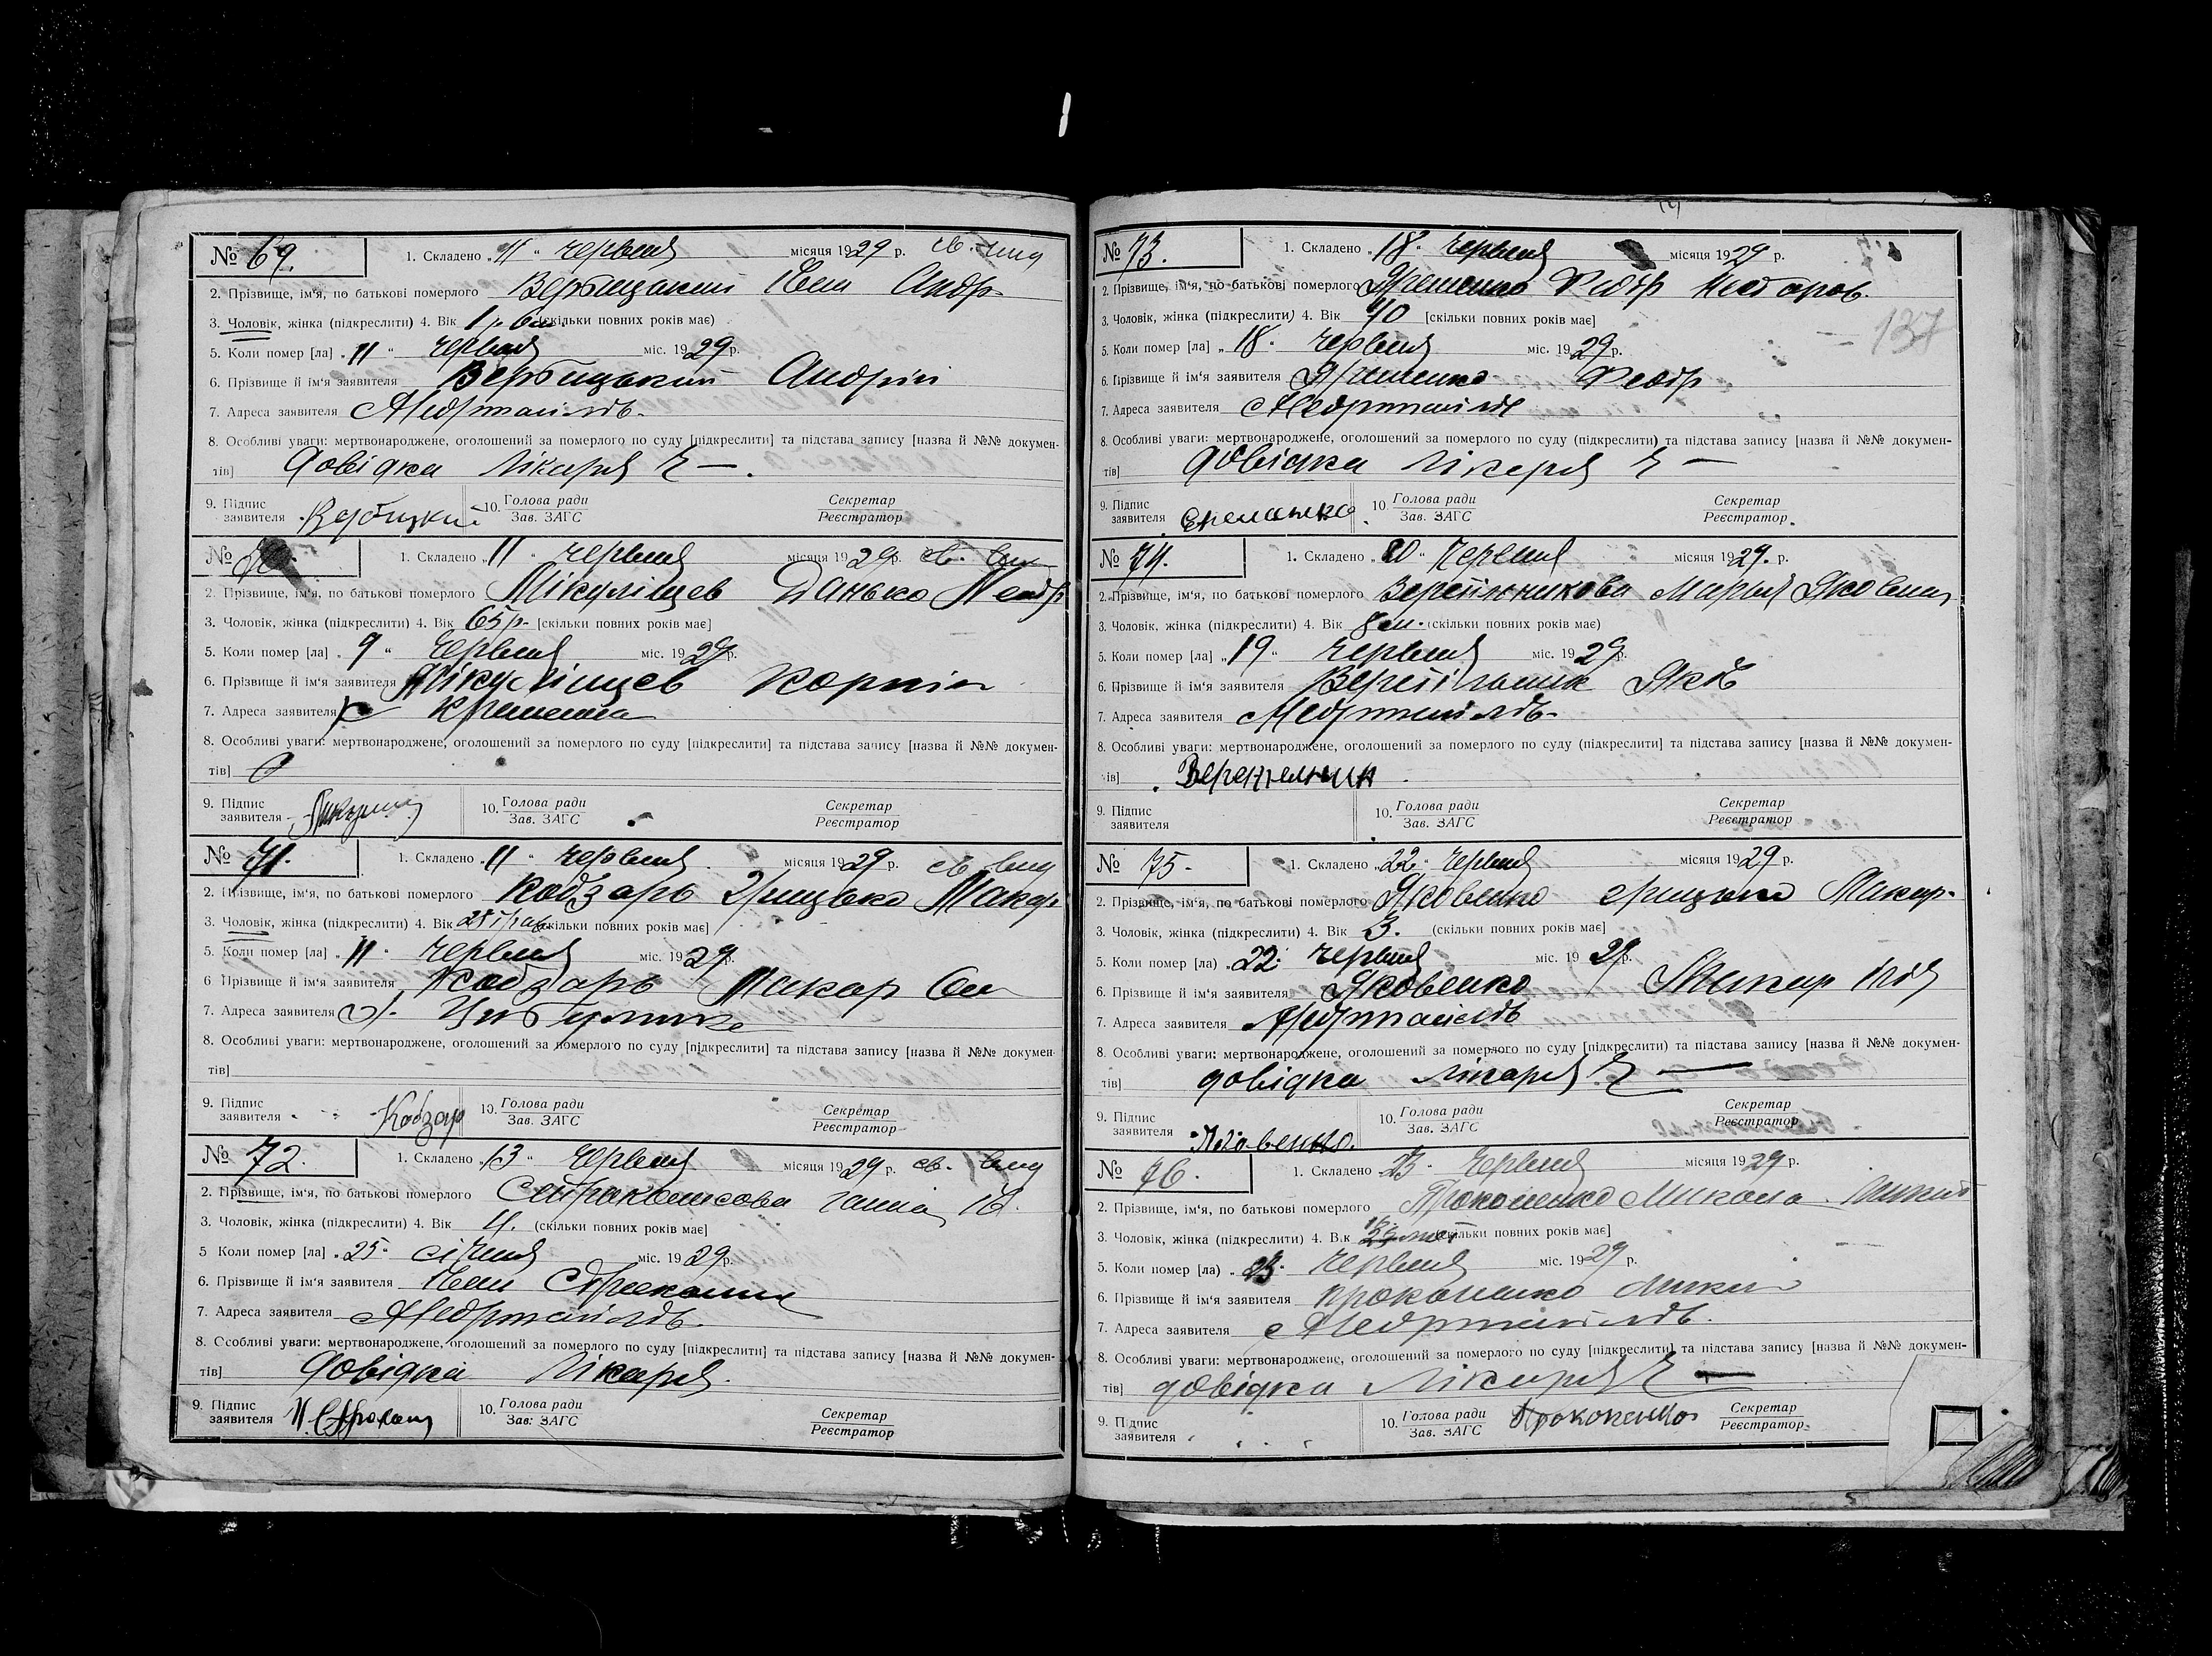 № 69. 1. Складено „11“ червня місяця 1929 р.
2. Прізвище, ім'я, по батькові померлого Вербицький Іван Андр.
3. Чоловік, жінка (підкреслити) 4. Вік 1 р. 6 м. (скільки повних років має)
5. Коли помер [ла] „11“ червня міс. 1929 р.
6. Прізвище й ім'я заявителя Вербицький Андрій
7. Адреса заявителя
8. Особливі уваги: мертвонароджене, оголошений за померлого по суду [підкреслити] та підстава запису [назва й №№ докумен-
тів] довідка лікаря Ч —.
9. Підпис заявителя Вербицкий 10. Голова ради Зав. ЗАГС Секретар Реєстратор
№ 1. Складено „11“ червня місяця 1929 р.
2. Прізвище, ім'я, по батькові померлого Мікулінцев Данько
3. Чоловік, жінка (підкреслити) 4. Вік 65 р. [скільки повних років має]
5. Коли помер [ла] „9“ червня міс. 1929 р.
6. Прізвище й ім'я заявителя Мікулінцев Корній
7. Адреса заявителя
8. Особливі уваги: мертвонароджене, оголошений за померлого по суду [підкреслити] та підстава запису [назва й №№ докумен-
тів]
9. Підпис заявителя 10. Голова ради Зав. ЗАГС Секретар Реєстратор
№ 71. 1. Складено „11“ червня місяця 1929 р.
2. Прізвище, ім'я, по батькові померлого Кобзарь Грицько Макар
3. Чоловік, жінка (підкреслити) 4. Вік [скільки повних років має]
5. Коли помер [ла] „11“ червня міс. 1929 р.
6. Прізвище й ім'я заявителя Кобзарь Макар
7. Адреса заявителя
8. Особливі уваги: мертвонароджене, оголошений за померлого по суду [підкреслити] та підстава запису [назва й №№ докумен-
тів]
9. Підпис заявителя Кобзар 10. Голова ради Зав. ЗАГС Секретар Реєстратор
№ 72. 1. Складено „13“ червня місяця 1929 р.
2. Прізвище, ім'я, по батькові померлого Ганна
3. Чоловік, жінка (підкреслити) 4. Вік (скільки повних років має]
5. Коли помер [ла] „25“ січня міс. 1929 р.
6. Прізвище й ім'я заявителя Іван
7. Адреса заявителя
8. Особливі уваги: мертвонароджене, оголошений за померлого по суду [підкреслити] та підстава запису [назва й №№ докумен-
тів] довідка лікаря.
9. Підпис заявителя 10. Голова ради Зав. ЗАГС Секретар Реєстратор
№ 73. 1. Складено „18“ червня місяця 1929 р.
2. Прізвище, ім'я, по батькові померлого Федір
3. Чоловік, жінка (підкреслити) 4. Вік 70 [скільки повних років має]
137
5. Коли помер [ла] „18“ червня міс. 1929 р.
6. Прізвище й ім'я заявителя Федір
7. Адреса заявителя
8. Особливі уваги: мертвонароджене, оголошений за померлого по суду (підкреслити) та підстава запису [назва й №№ докумен-
тів] довідка лікаря Ч —
9. Підпис заявителя 10. Голова ради Зав. ЗАГС Секретар Реєстратор
№ 74. 1. Складено „20“ червня місяця 1929 р.
2. Прізвище, ім'я, по батькові померлого Марья Яковлів
3. Чоловік, жінка (підкреслити) 4. Вік 8 м. (скільки повних років має)
5. Коли помер [ла] „19“ червня міс. 1929 р.
6. Прізвище й ім'я заявителя Яків
7. Адреса заявителя
8. Особливі уваги: мертвонароджене, оголошений за померлого по суду (підкреслити] та підстава запису [назва й №№ докумен-
тів]
9. Підпис заявителя 10. Голова ради Зав. ЗАГС Секретар Реєстратор
№ 75. 1. Складено „22“ червня місяця 1929 р.
2. Прізвище, ім'я, по батькові померлого Яковенко Грицько Макар.
3. Чоловік, жінка (підкреслити) 4. Вік 3. (скільки повних років має]
5. Коли помер [ла) „22“ червня міс. 1929 р.
6. Прізвище й ім'я заявителя Яковенко Макар
7. Адреса заявителя
8. Особливі уваги: мертвонароджене, оголошений за померлого по суду [підкреслити) та підстава запису [назва й №№ докумен-
тів] довідка лікаря Ч —
9. Підпис заявителя Яковенко. 10. Голова ради Зав. ЗАГС Секретар Реєстратор
№ 76. 1. Складено „23“ червня місяця 1929 р.
2. Прізвище, ім'я, по батькові померлого Прокопенко Микола Микит
3. Чоловік, жінка (підкреслити) 4. Вік [скільки повних років має]
5. Коли помер [ла) „23“ червня міс. 1929 р.
6. Прізвище й ім'я заявителя Прокопенко Микит
7. Адреса заявителя
8. Особливі уваги: мертвонароджене, оголошений за померлого по суду [підкреслити] та підстава запису [назва й №№ докумен-
тів] довідка лікаря Ч —
9. Підпис заявителя 10. Голова ради Зав. ЗАГС Прокопенко Секретар Реєстратор